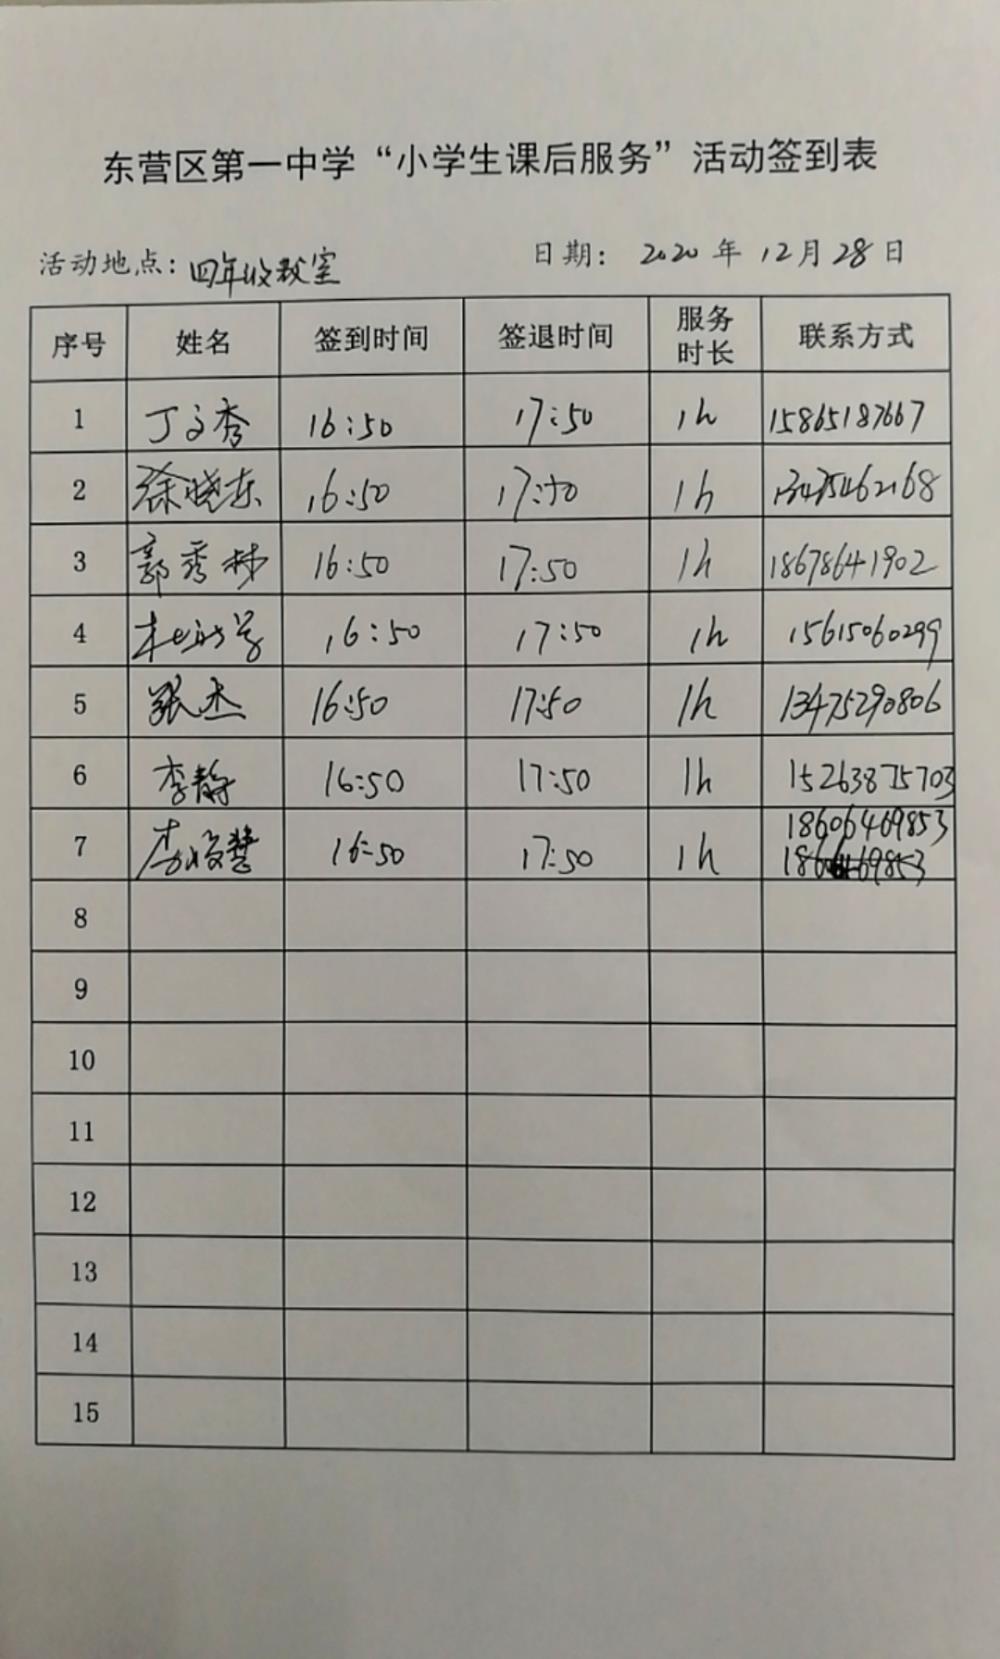 东营区第一中学“小学生课后服务”活动签到表
活动地点：四年级教室 日期： 2020 年 12 月 28 日
序号 姓名 签到时间 签退时间 服务时长 联系方式
1 丁文秀 16:50 17:50 1h 15865187667
2 徐晓东 16:50 17:50 1h 13475462168
3 郭秀林 16:50 17:50 1h 18678641902
4 16:50 17:50 1h 15615060299
5 张杰 16:50 17:50 1h 13475290806
6 李静 16:50 17:50 1h 15263875703
7 16:50 17:50 1h 18606469853
8
9
10
11
12
13
14
15